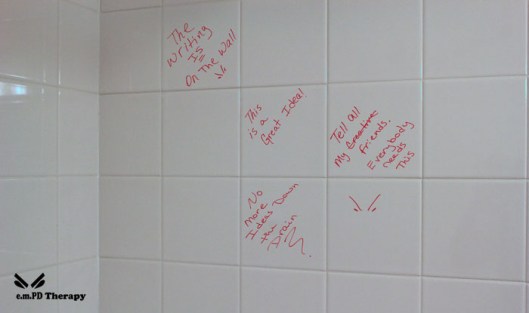 The
Writing
Is
On The Wall
This
is a
Great Idea!
Tell all
My Creative
Friends.
Everybody
needs
This
No
More
Ideas Down
the
Drain
e.m.PD Therapy